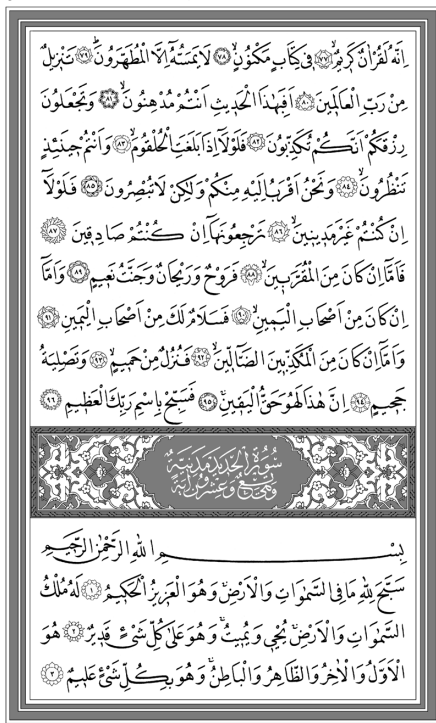 اِنَّهُ لَقُرْاٰنٌ كَر۪يمٌۙ ﴿٧٧﴾ ف۪ي كِتَابٍ مَكْنُونٍۙ ﴿٧٨﴾ لَا يَمَسُّهُٓ اِلَّا الْمُطَهَّرُونَۜ ﴿٧٩﴾ تَنْز۪يلٌ
مِنْ رَبِّ الْعَالَم۪ينَ ﴿٨٠﴾ اَفَبِهٰذَا الْحَد۪يثِ اَنْتُمْ مُدْهِنُونَۙ ﴿٨١﴾ وَتَجْعَلُونَ
رِزْقَكُمْ اَنَّكُمْ تُكَذِّبُونَ ﴿٨٢﴾ فَلَوْلَٓا اِذَا بَلَغَتِ الْحُلْقُومَۙ ﴿٨٣﴾ وَاَنْتُمْ ح۪ينَئِذٍ
تَنْظُرُونَۙ ﴿٨٤﴾ وَنَحْنُ اَقْرَبُ اِلَيْهِ مِنْكُمْ وَلٰكِنْ لَا تُبْصِرُونَ ﴿٨٥﴾ فَلَوْلَٓا
اِنْ كُنْتُمْ غَيْرَ مَد۪ين۪ينَۙ ﴿٨٦﴾ تَرْجِعُونَهَٓا اِنْ كُنْتُمْ صَادِق۪ينَ ﴿٨٧﴾
فَاَمَّٓا اِنْ كَانَ مِنَ الْمُقَرَّب۪ينَۙ ﴿٨٨﴾ فَرَوْحٌ وَرَيْحَانٌ وَجَنَّتُ نَع۪يمٍ ﴿٨٩﴾ وَاَمَّٓا
اِنْ كَانَ مِنْ اَصْحَابِ الْيَم۪ينِۙ ﴿٩٠﴾ فَسَلَامٌ لَكَ مِنْ اَصْحَابِ الْيَم۪ينِ ﴿٩١﴾
وَاَمَّٓا اِنْ كَانَ مِنَ الْمُكَذِّب۪ينَ الضَّٓالّ۪ينَۙ ﴿٩٢﴾ فَنُزُلٌ مِنْ حَم۪يمٍۙ ﴿٩٣﴾ وَتَصْلِيَةُ
جَح۪يمٍ ﴿٩٤﴾ اِنَّ هٰذَا لَهُوَ حَقُّ الْيَق۪ينِۚ ﴿٩٥﴾ فَسَبِّحْ بِاسْمِ رَبِّكَ الْعَظ۪يمِ ﴿٩٦﴾
سُورَةُ الْحَد۪يدِ مَدَنِيَّةٌ
وَهِيَ تِسْعٌ وَعِشْرُونَ اٰيَةً
بِسْمِ اللّٰهِ الرَّحْمٰنِ الرَّح۪يمِ
سَبَّحَ لِلّٰهِ مَا فِي السَّمٰوَاتِ وَالْاَرْضِۚ وَهُوَ الْعَز۪يزُ الْحَك۪يمُ ﴿١﴾ لَهُ مُلْكُ
السَّمٰوَاتِ وَالْاَرْضِۚ يُحْي۪ وَيُم۪يتُۚ وَهُوَ عَلٰى كُلِّ شَيْءٍ قَد۪يرٌ ﴿٢﴾ هُوَ
الْاَوَّلُ وَالْاٰخِرُ وَالظَّاهِرُ وَالْبَاطِنُۚ وَهُوَ بِكُلِّ شَيْءٍ عَل۪يمٌ ﴿٣﴾